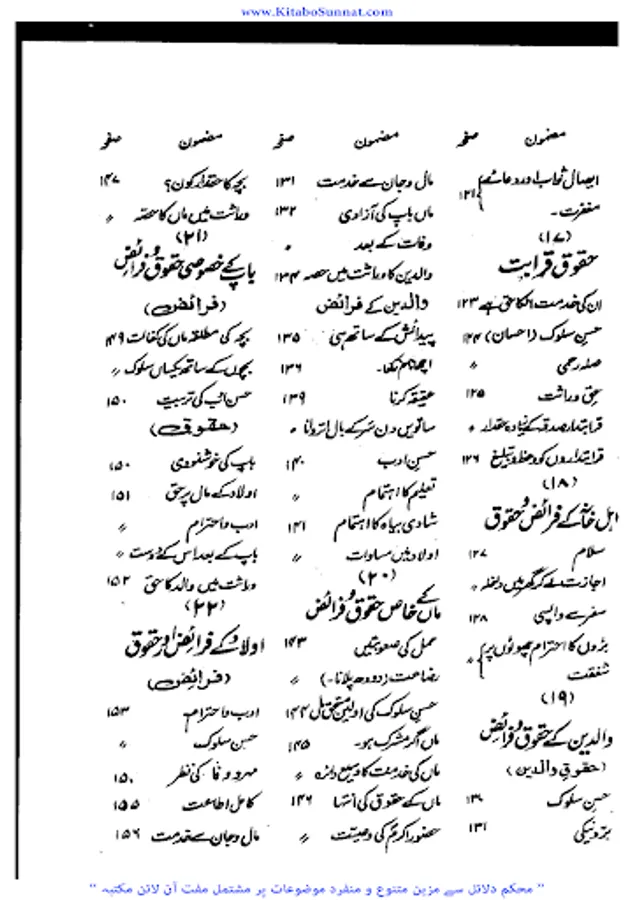 www.KitaboSunnat.com
مضمون صفحہ
ایصال ثواب اور دعائے
مغفرت۔ ۱۲۱
(۱۷)
حقوق قرابت
ان کی خدمت انکا حق ہے ۱۲۳
حسن سلوک (احسان) ۱۲۴
صلہ رحمی 〃
حق وراثت ۱۲۵
قرابتدار صدقہ کے زیادہ حقدار 〃
قرابتداروں کو وعظ و تبلیغ ۱۲۶
(۱۸)
اہل خانہ کے فرائض و حقوق
سلام ۱۲۷
اجازت لے کر گھر میں داخلہ 〃
سفر سے واپسی ۱۲۸
بڑوں کا احترام چھوٹوں پر
شفقت 〃
(۱۹)
والدین کے حقوق و فرائض
(حقوق والدین)
حسن سلوک ۱۳۰
بڑی نیکی ۱۳۱
مضمون صفحہ
مال و جان سے خدمت ۱۳۱
ماں باپ کی آزادی ۱۳۲
وفات کے بعد 〃
والدین کا وراثت میں حصہ ۱۳۴
والدین کے فرائض
پیدائش کے ساتھ ہی ۱۳۵
اچھا نام رکھنا۔ ۱۳۶
عقیقہ کرنا ۱۳۹
ساتویں دن سر کے بال اتروانا 〃
حسن ادب ۱۴۰
تعلیم کا اہتمام 〃
شادی بیاہ کا اہتمام ۱۴۱
اولاد میں مساوات 〃
(۲۰)
ماں کے خاص حقوق و فرائض
حمل کی صعوبتیں ۱۴۳
رضاعت (دودھ پلانا۔) 〃
حسن سلوک کی اولین مستحق ۱۴۴
ماں اگر مشرک ہو۔ ۱۴۵
ماں کی خدمت کا وسیع دائرہ 〃
ماں کے حقوق کی انتہا ۱۴۶
حضور اکرم کی وصیت 〃
مضمون صفحہ
بچہ کا حقدار کون؟ ۱۴۷
وراثت میں ماں کا حصہ 〃
(۲۱)
باپ کے خصوصی حقوق و فرائض
(فرائض)
بچہ کی مطلقہ ماں کی کفالت ۱۴۹
بچوں کے ساتھ یکساں سلوک 〃
حسن ادب کی تربیت ۱۵۰
(حقوق)
باپ کی خوشنودی ۱۵۰
اولاد کے مال پر حق ۱۵۱
ادب و احترام 〃
باپ کے بعد اس کے دوست 〃
وراثت میں والد کا حق ۱۵۲
(۲۲)
اولاد کے فرائض اور حقوق
(فرائض)
ادب و احترام ۱۵۳
حسن سلوک 〃
مہر و وفا کی نظر
کامل اطاعت ۱۵۵
مال و جان سے خدمت ۱۵۶
"محکم دلائل سے مزین متنوع و منفرد موضوعات پر مشتمل مفت آن لائن مکتبہ"